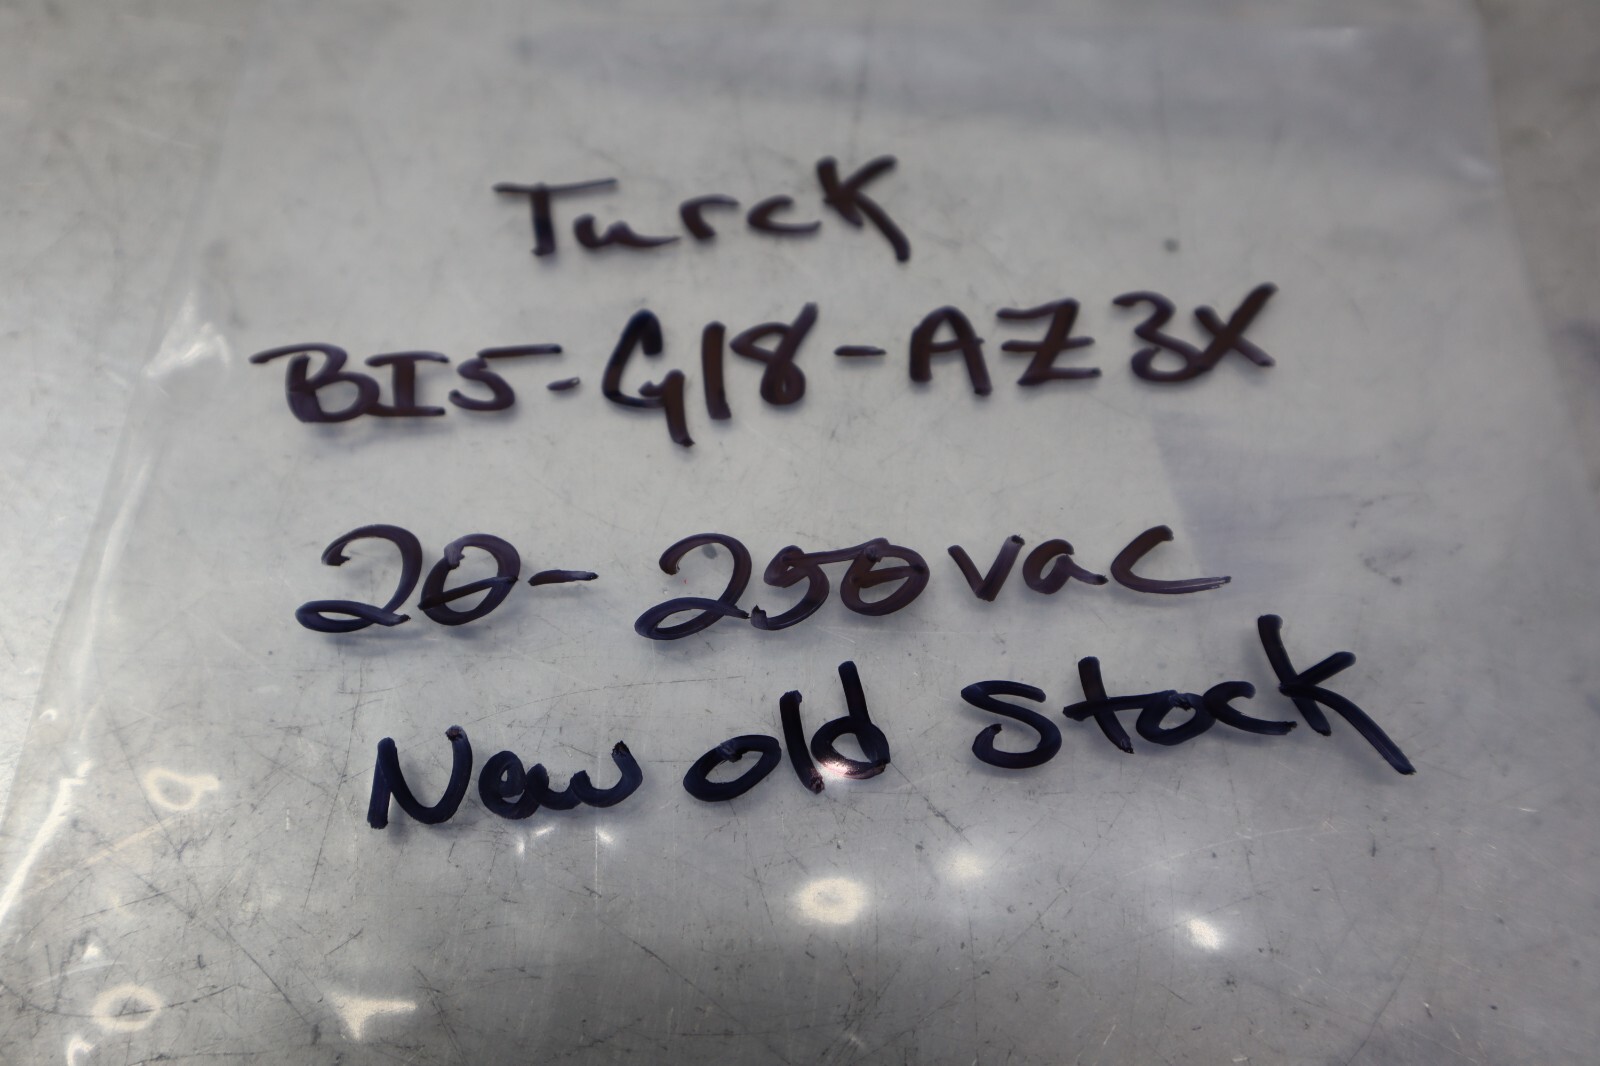 Turck
BI5-G18-AZ3X
20-250vac
New old Stock